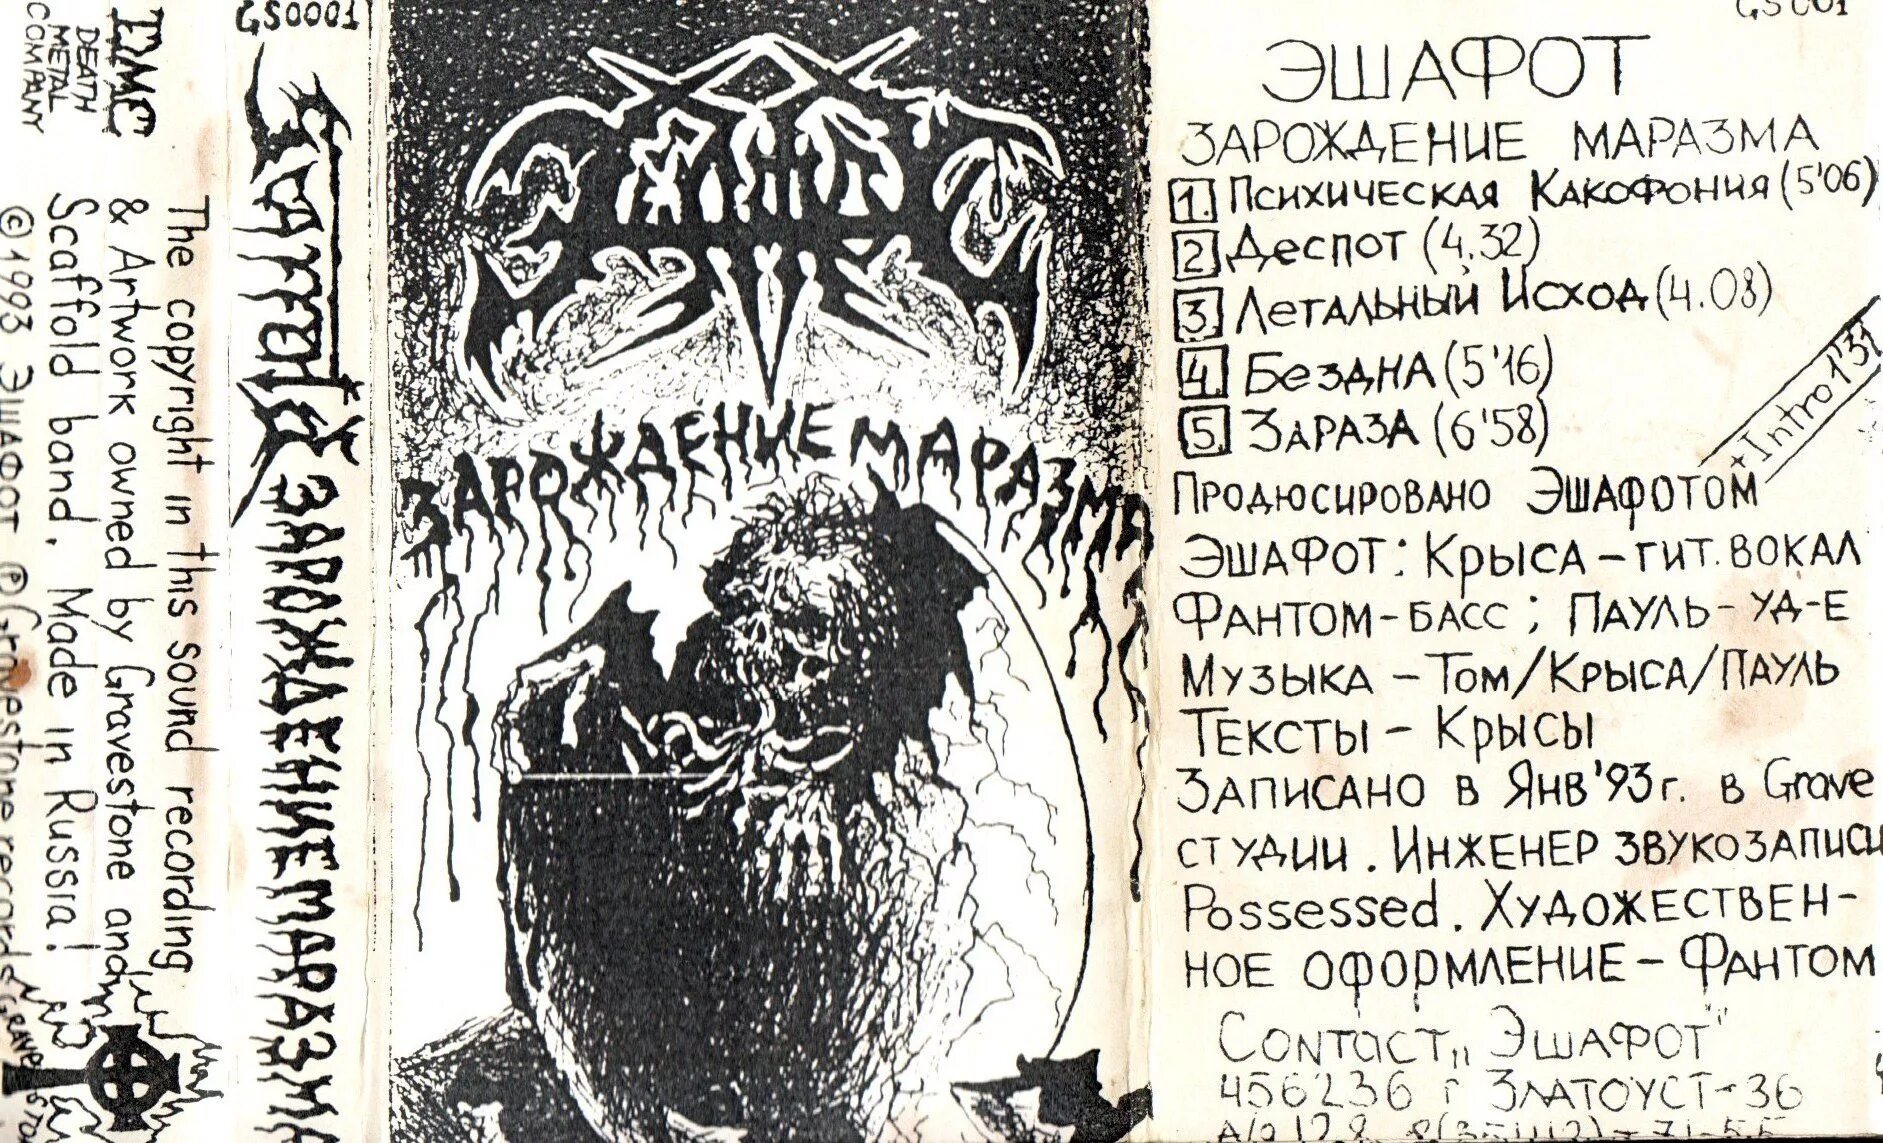 DMC
DEATH
METAL
COMPANY
The copyright in this sound recording
& Artwork owned by Gravestone and
Scaffold band. Made in Russia!
©1993 Эшафот ℗ Gravestone records
GS0001
ЗАРОЖДЕНИЕ МАРАЗМА
ЗАРОЖДЕНИЕ МАРАЗМА
GS001
ЭШАФОТ
ЗАРОЖДЕНИЕ МАРАЗМА
1. Психическая Какофония (5'06)
2 Деспот (4.32)
3. Летальный Исход (4.08)
4. Бездна (5'16)
5. Зараза (6'58)
+Intro 1'31
Продюсировано Эшафотом
Эшафот: Крыса – гит. вокал
Фантом-басс; Пауль-уд-е
Музыка – Том/Крыса/Пауль
Тексты – Крысы
Записано в Янв'93г. в Grave
студии. Инженер звукозаписи
Possessed. Художествен-
ное оформление – Фантом
Contact „Эшафот"
456236 г Златоуст-36